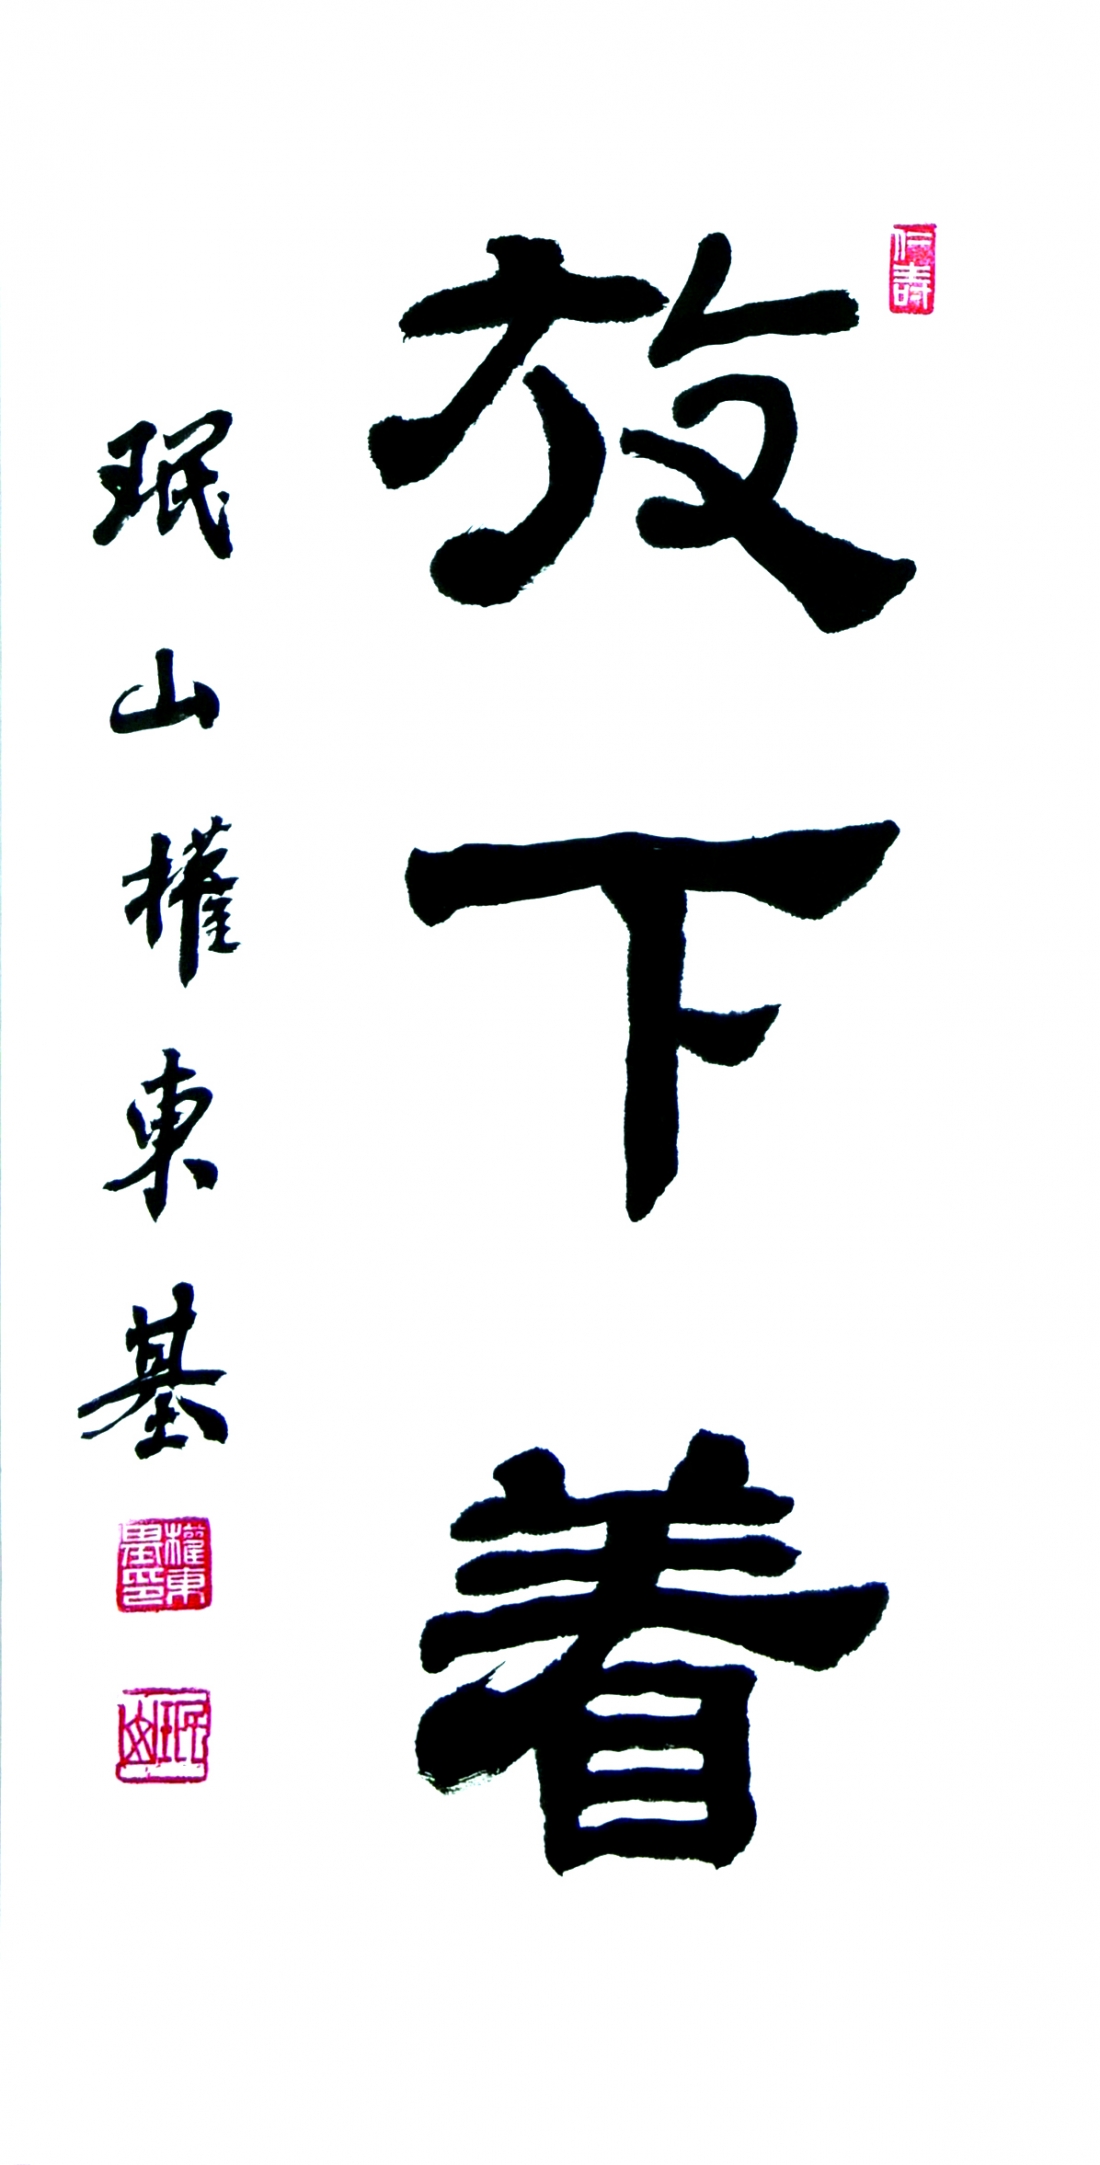 仁壽
放下着
珉山權東基
權東基印
珉山